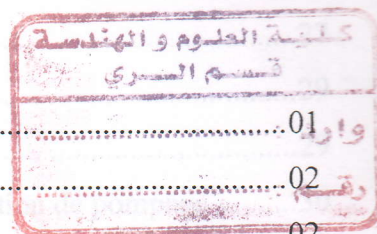 كلية العلوم و الهندسة
قسم الري
وارد ........................ 01
رقم ........................ 02
02